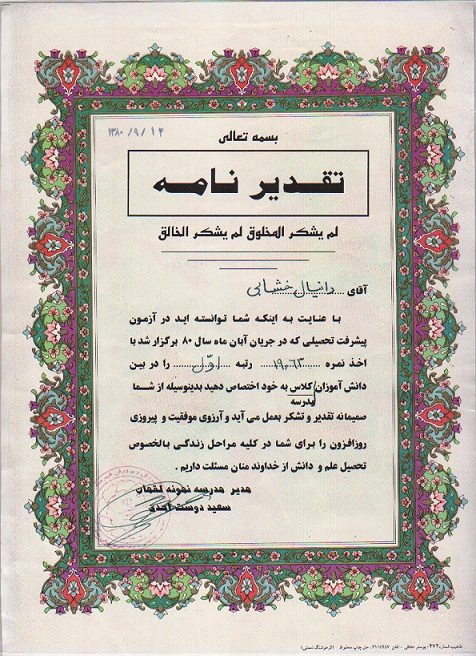 ۱۳۸۰/۹/۱۲
بسمه تعالی
تقدیر نامه
لم یشکر المخلوق لم یشکر الخالق
آقای دانیال خشابی
با عنایت به اینکه شما توانسته اید در آزمون
پیشرفت تحصیلی که در جریان آبان ماه سال ۸۰ برگزار شد با
اخذ نمره ۱۹/۶۳ رتبه اوّل را در بین
دانش آموزان کلاس به خود اختصاص دهید بدینوسیله از شما
مدرسه
صمیمانه تقدیر و تشکر بعمل می آید و آرزوی موفقیت و پیروزی
روزافزون را برای شما در کلیه مراحل زندگی بالخصوص
تحصیل علم و دانش از خداوند منان مسئلت داریم.
مدیر مدرسه نمونه لقمان
سعید دوست